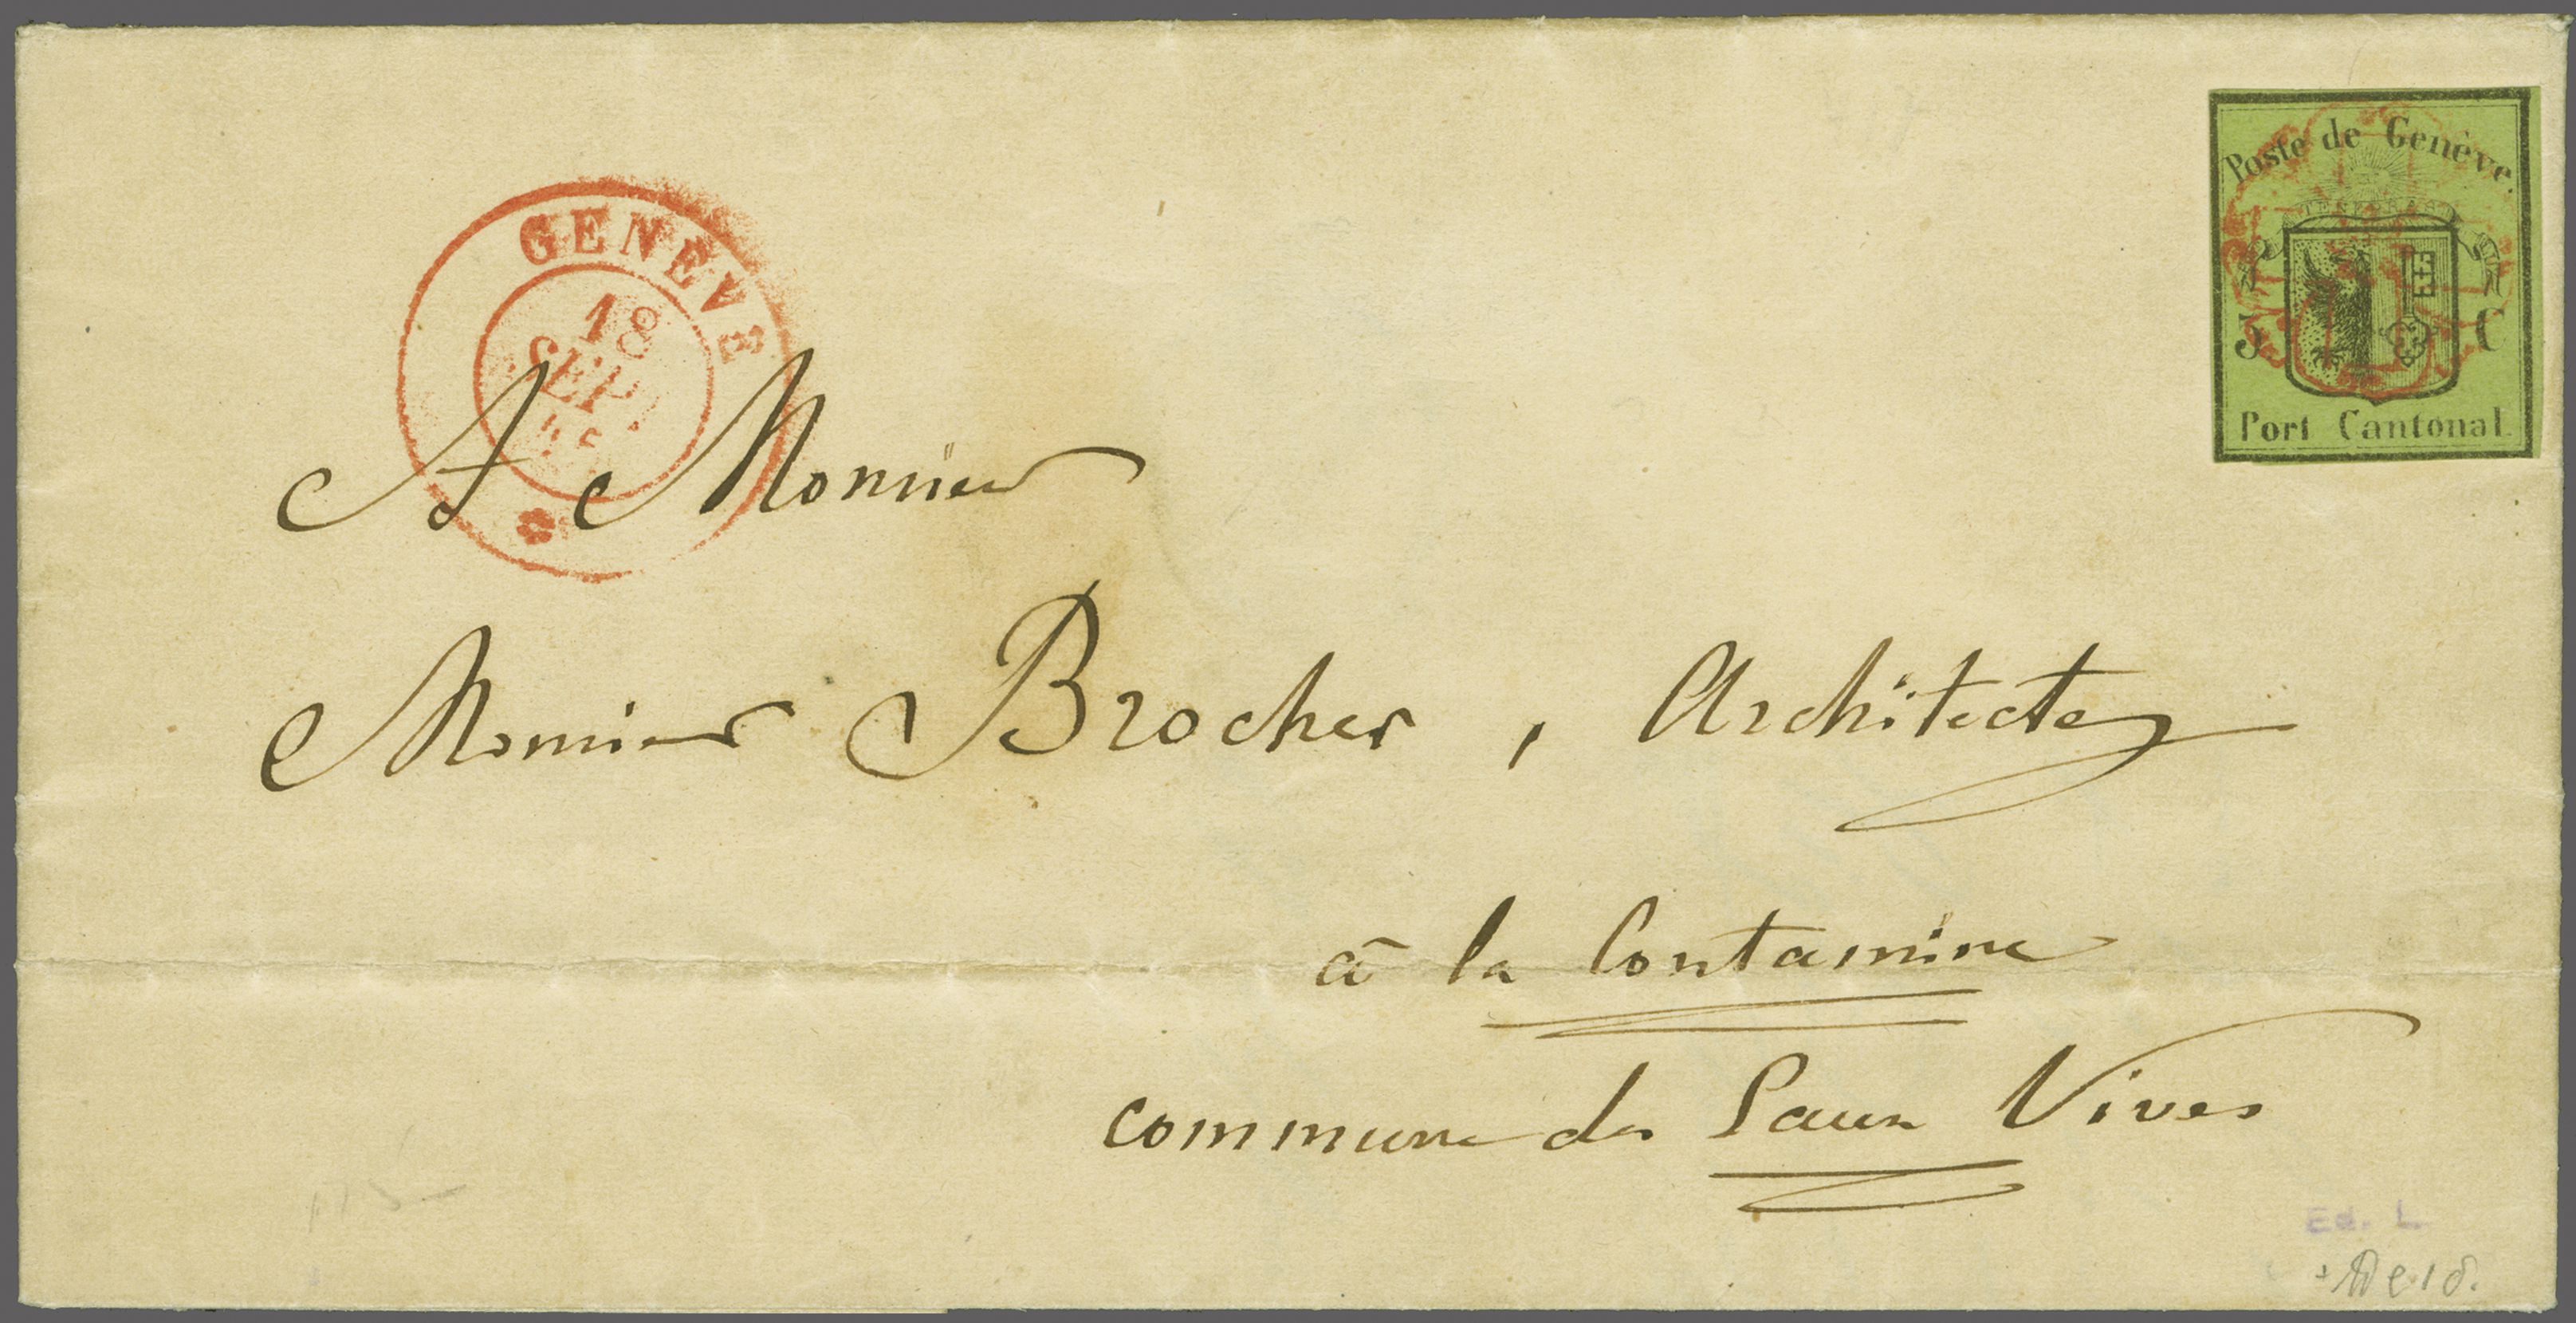 GENÈVE
18
SEPT
Poste de Genève.
POST TENEBRAS LUX
5 C
Port Cantonal
A Monsieur
Monsieur Brocher, Architecte
à la Contamine
commune des Eaux Vives
Ed. L.